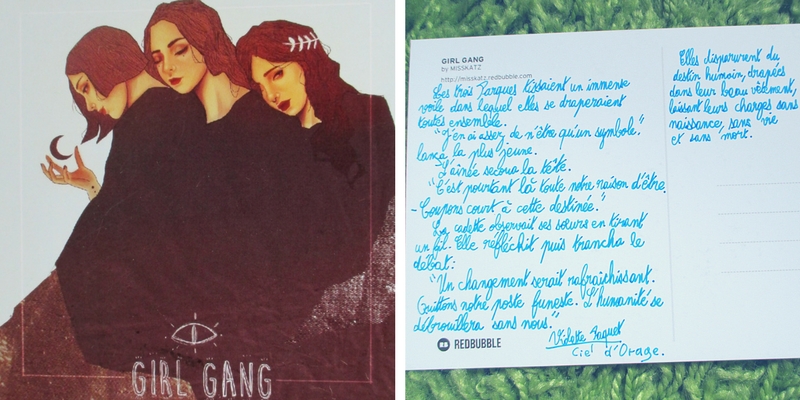 GIRL GANG
GIRL GANG
by MISSKATZ
http://misskatz.redbubble.com
Les trois Parques tissaient un immense
voile dans lequel elles se draperaient
toutes ensemble.
"J'en ai assez de n'être qu'un symbole."
lança la plus jeune.
L'aînée secoua la tête.
"C'est pourtant là toute notre raison d'être.
- Coupons court à cette destinée."
La cadette observait ses sœurs en tirant
un fil. Elle réfléchit puis trancha le
débat:
"Un changement serait rafraîchissant.
Quittons notre poste funeste. L'humanité se
débrouillera sans nous."
Ciel d'Orage.
REDBUBBLE
Elles disparurent du
destin humain, drapées
dans leur beau vêtement,
laissant leurs charges sans
naissance, sans vie
et sans mort.